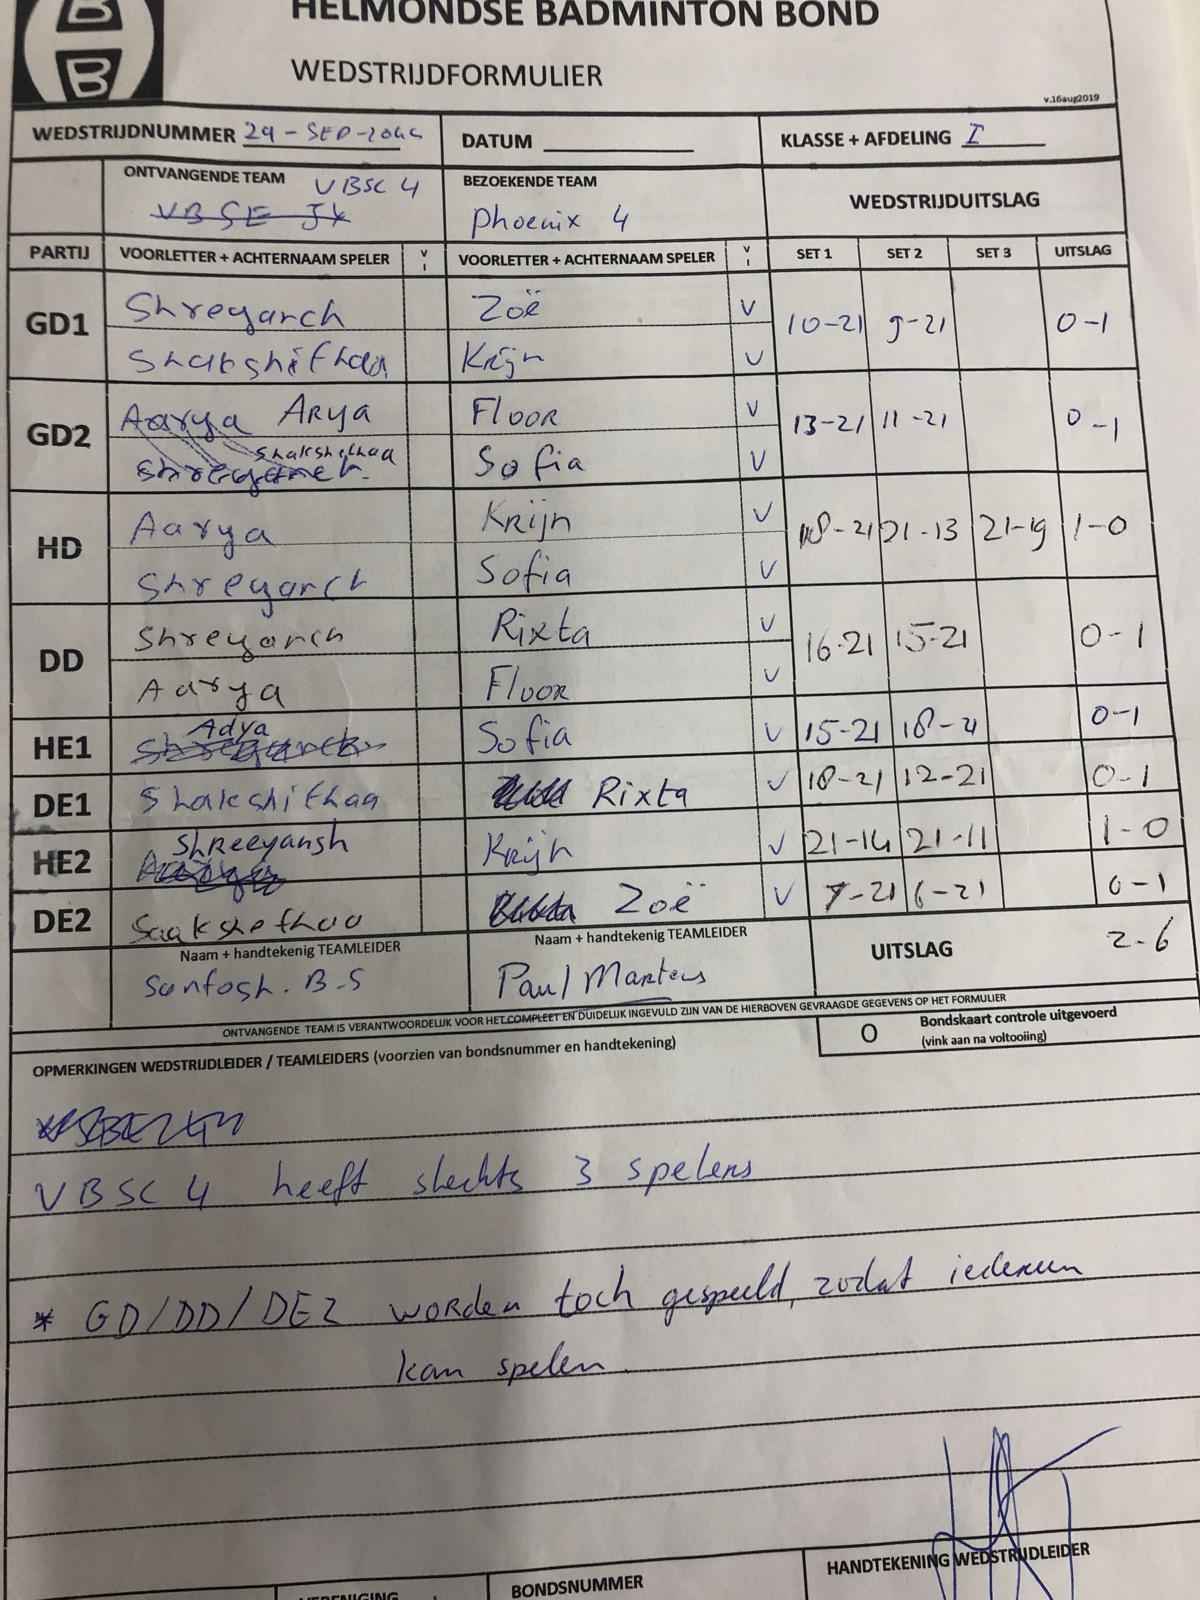 HELMONDSE BADMINTON BOND
B
B
WEDSTRIJDFORMULIER
v.16aug2019
WEDSTRIJDNUMMER 29-SEP- DATUM KLASSE + AFDELING I
ONTVANGENDE TEAM VBSC 4 BEZOEKENDE TEAM WEDSTRIJDUITSLAG
Phoenix 4
PARTIJ VOORLETTER + ACHTERNAAM SPELER V I VOORLETTER + ACHTERNAAM SPELER V I SET 1 SET 2 SET 3 UITSLAG
GD1 Shreyarch Zoë V 10-21 9-21 0-1
Shakshithaa Krijn V
GD2 Aarya ARYA FLOOR V 13-21 11-21 0-1
Shakshithaa Sofia V
HD Aarya Krijn V 18-21 21-13 21-19 1-0
Shreyarch Sofia V
DD Shreyarch Rixta V 16-21 15-21 0-1
Aarya Floor V
HE1 Adya Sofia V 15-21 18-21 0-1
DE1 Shakshithaa Rixta V 18-21 12-21 0-1
HE2 Shreeyansh Krijn V 21-14 21-11 1-0
DE2 Saakshethaa Zoë V 7-21 6-21 0-1
Naam + handtekenig TEAMLEIDER Naam + handtekenig TEAMLEIDER UITSLAG 2-6
Santosh. B.S Paul Martens
ONTVANGENDE TEAM IS VERANTWOORDELIJK VOOR HET COMPLEET EN DUIDELIJK INGEVULD ZIJN VAN DE HIERBOVEN GEVRAAGDE GEGEVENS OP HET FORMULIER
O Bondskaart controle uitgevoerd
(vink aan na voltooiing)
OPMERKINGEN WEDSTRIJDLEIDER / TEAMLEIDERS (voorzien van bondsnummer en handtekening)
VBSC 4 heeft slechts 3 spelers
* GD/DD/DE2 worden toch gespeeld, zodat iedereen
kan spelen.
VERENIGING BONDSNUMMER HANDTEKENING WEDSTRIJDLEIDER